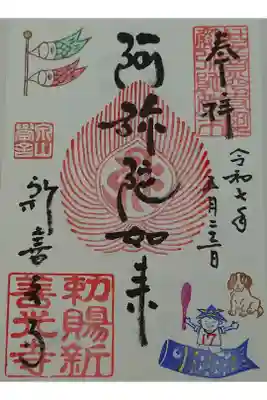 奉拝
令和七年
五月二三日
阿弥陀如来
新善光寺
勅賜新
善光寺